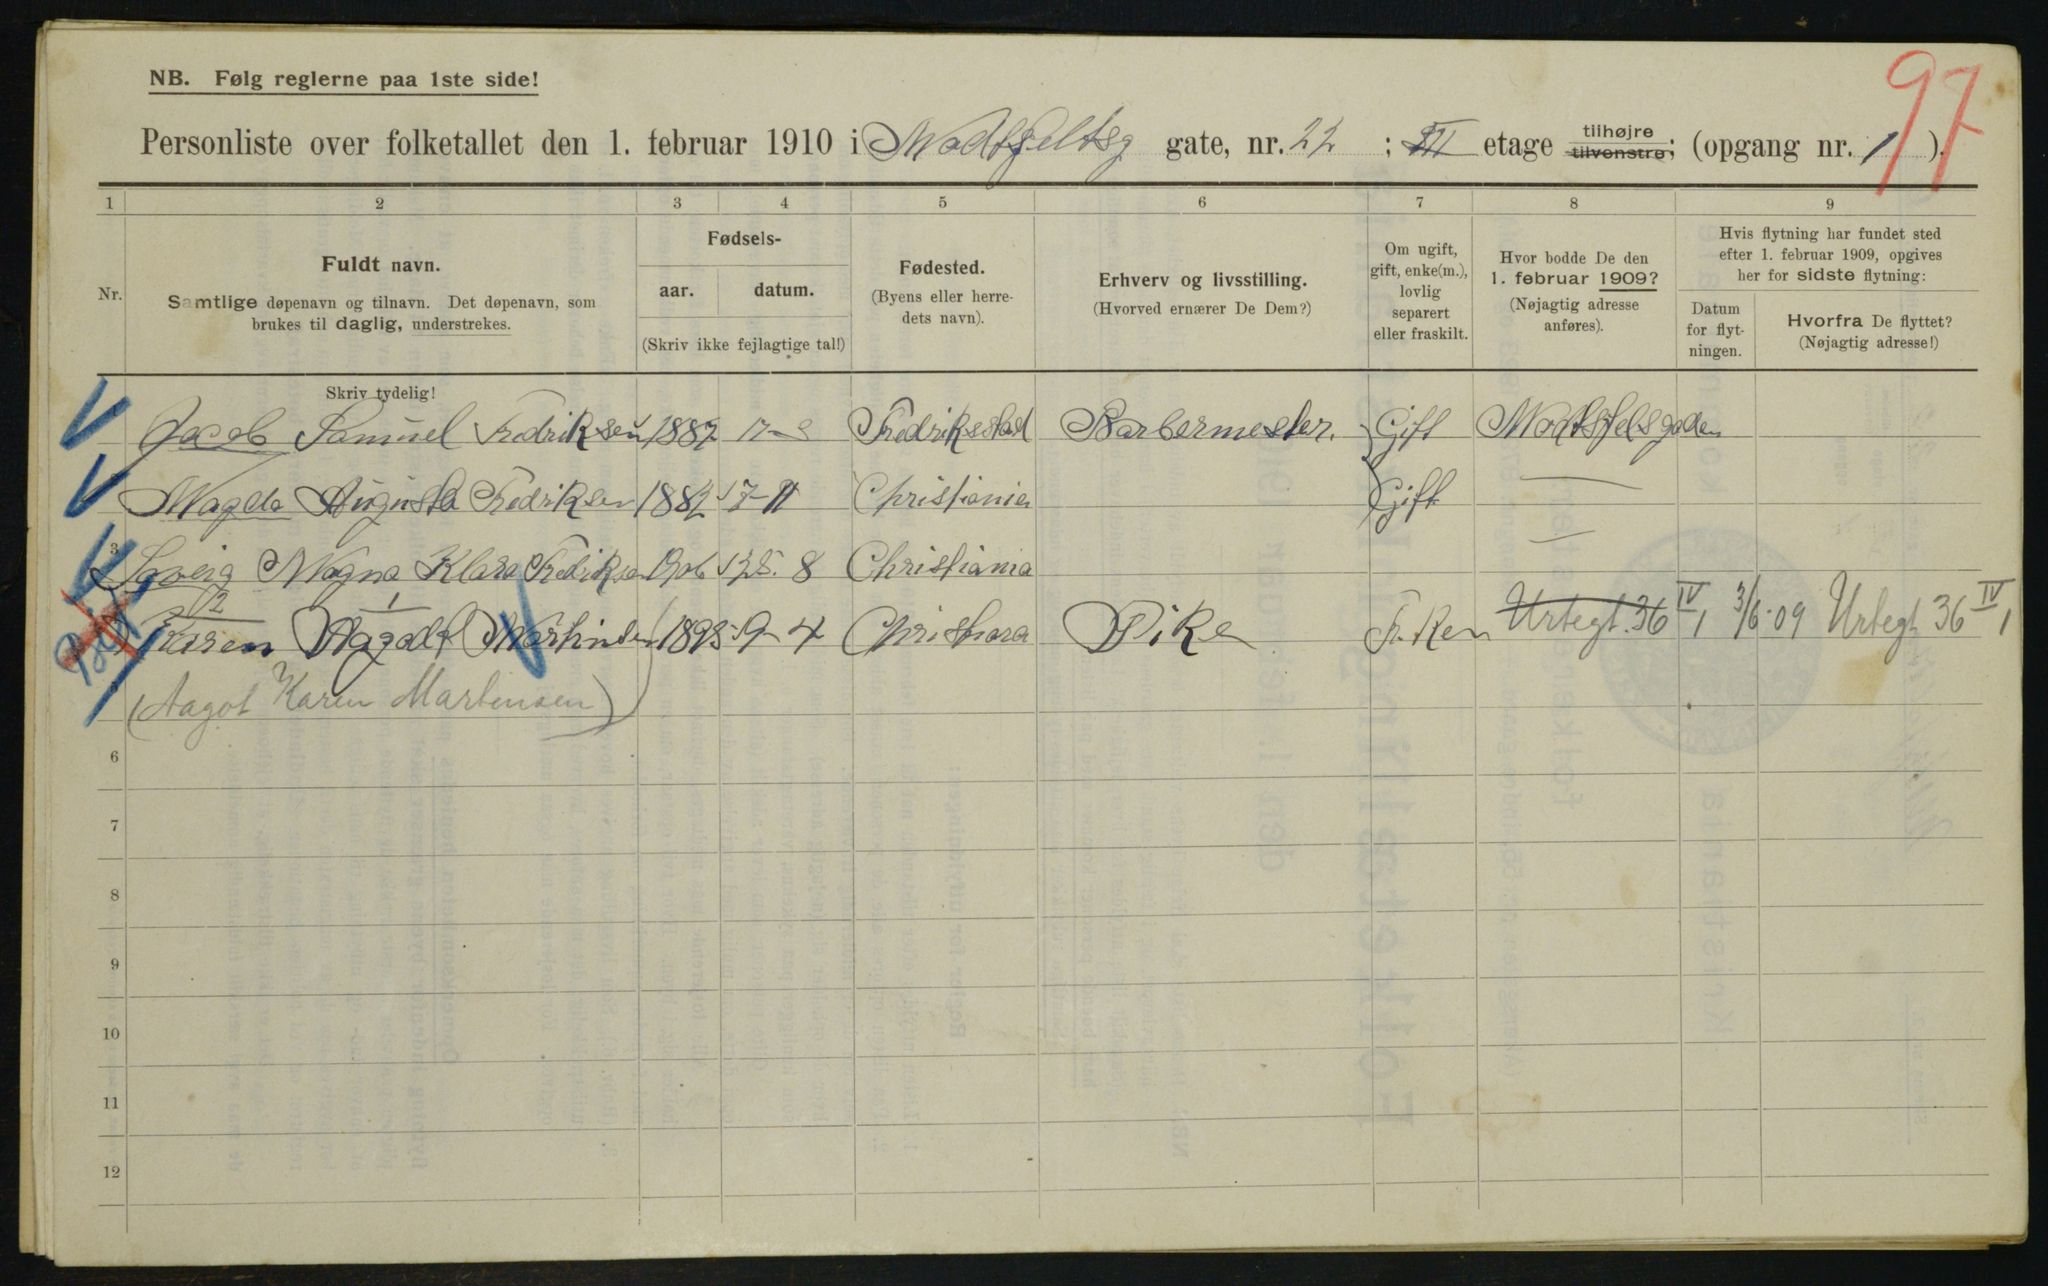 NB. Følg reglerne paa 1ste side!
97
Personliste over folketallet den 1. februar 1910 i Motzfeltsg gate, nr. 22 ; III etage tilhøjre tilvenstre; (opgang nr. 1 ).
1 2 3 4 5 6 7 8 9
Nr.
Fuldt navn.
Samtlige døpenavn og tilnavn. Det døpenavn, som
brukes til daglig, understrekes.
Fødsels-
aar. datum.
(Skriv ikke fejlagtige tal!)
Fødested.
(Byens eller herre-
dets navn).
Erhverv og livsstilling.
(Hvorved ernærer De Dem?)
Om ugift,
gift, enke(m.),
lovlig
separert
eller fraskilt.
Hvor bodde De den
1. februar 1909?
(Nøjagtig adresse
anføres).
Hvis flytning har fundet sted
efter 1. februar 1909, opgives
her for sidste flytning:
Datum
for flyt-
ningen.
Hvorfra De flyttet?
(Nøjagtig adresse!)
Skriv tydelig!
Jacob Samuel Fredriksen Fredriksstad Barbermester. Gift
Magda Augusta Fredriksen 1882 17-11 Christiania Gift —
3
Magna Klara Fredriksen 1906 25. 8 Christiania —
2 1
Karen Aagodt Martinsen 9-4 Pike Urtegt. 36 IV 1 3/6-09 Urtegt 36 IV 1
5
(Aagot Karen Martensen)
6
7
8
9
10
11
12